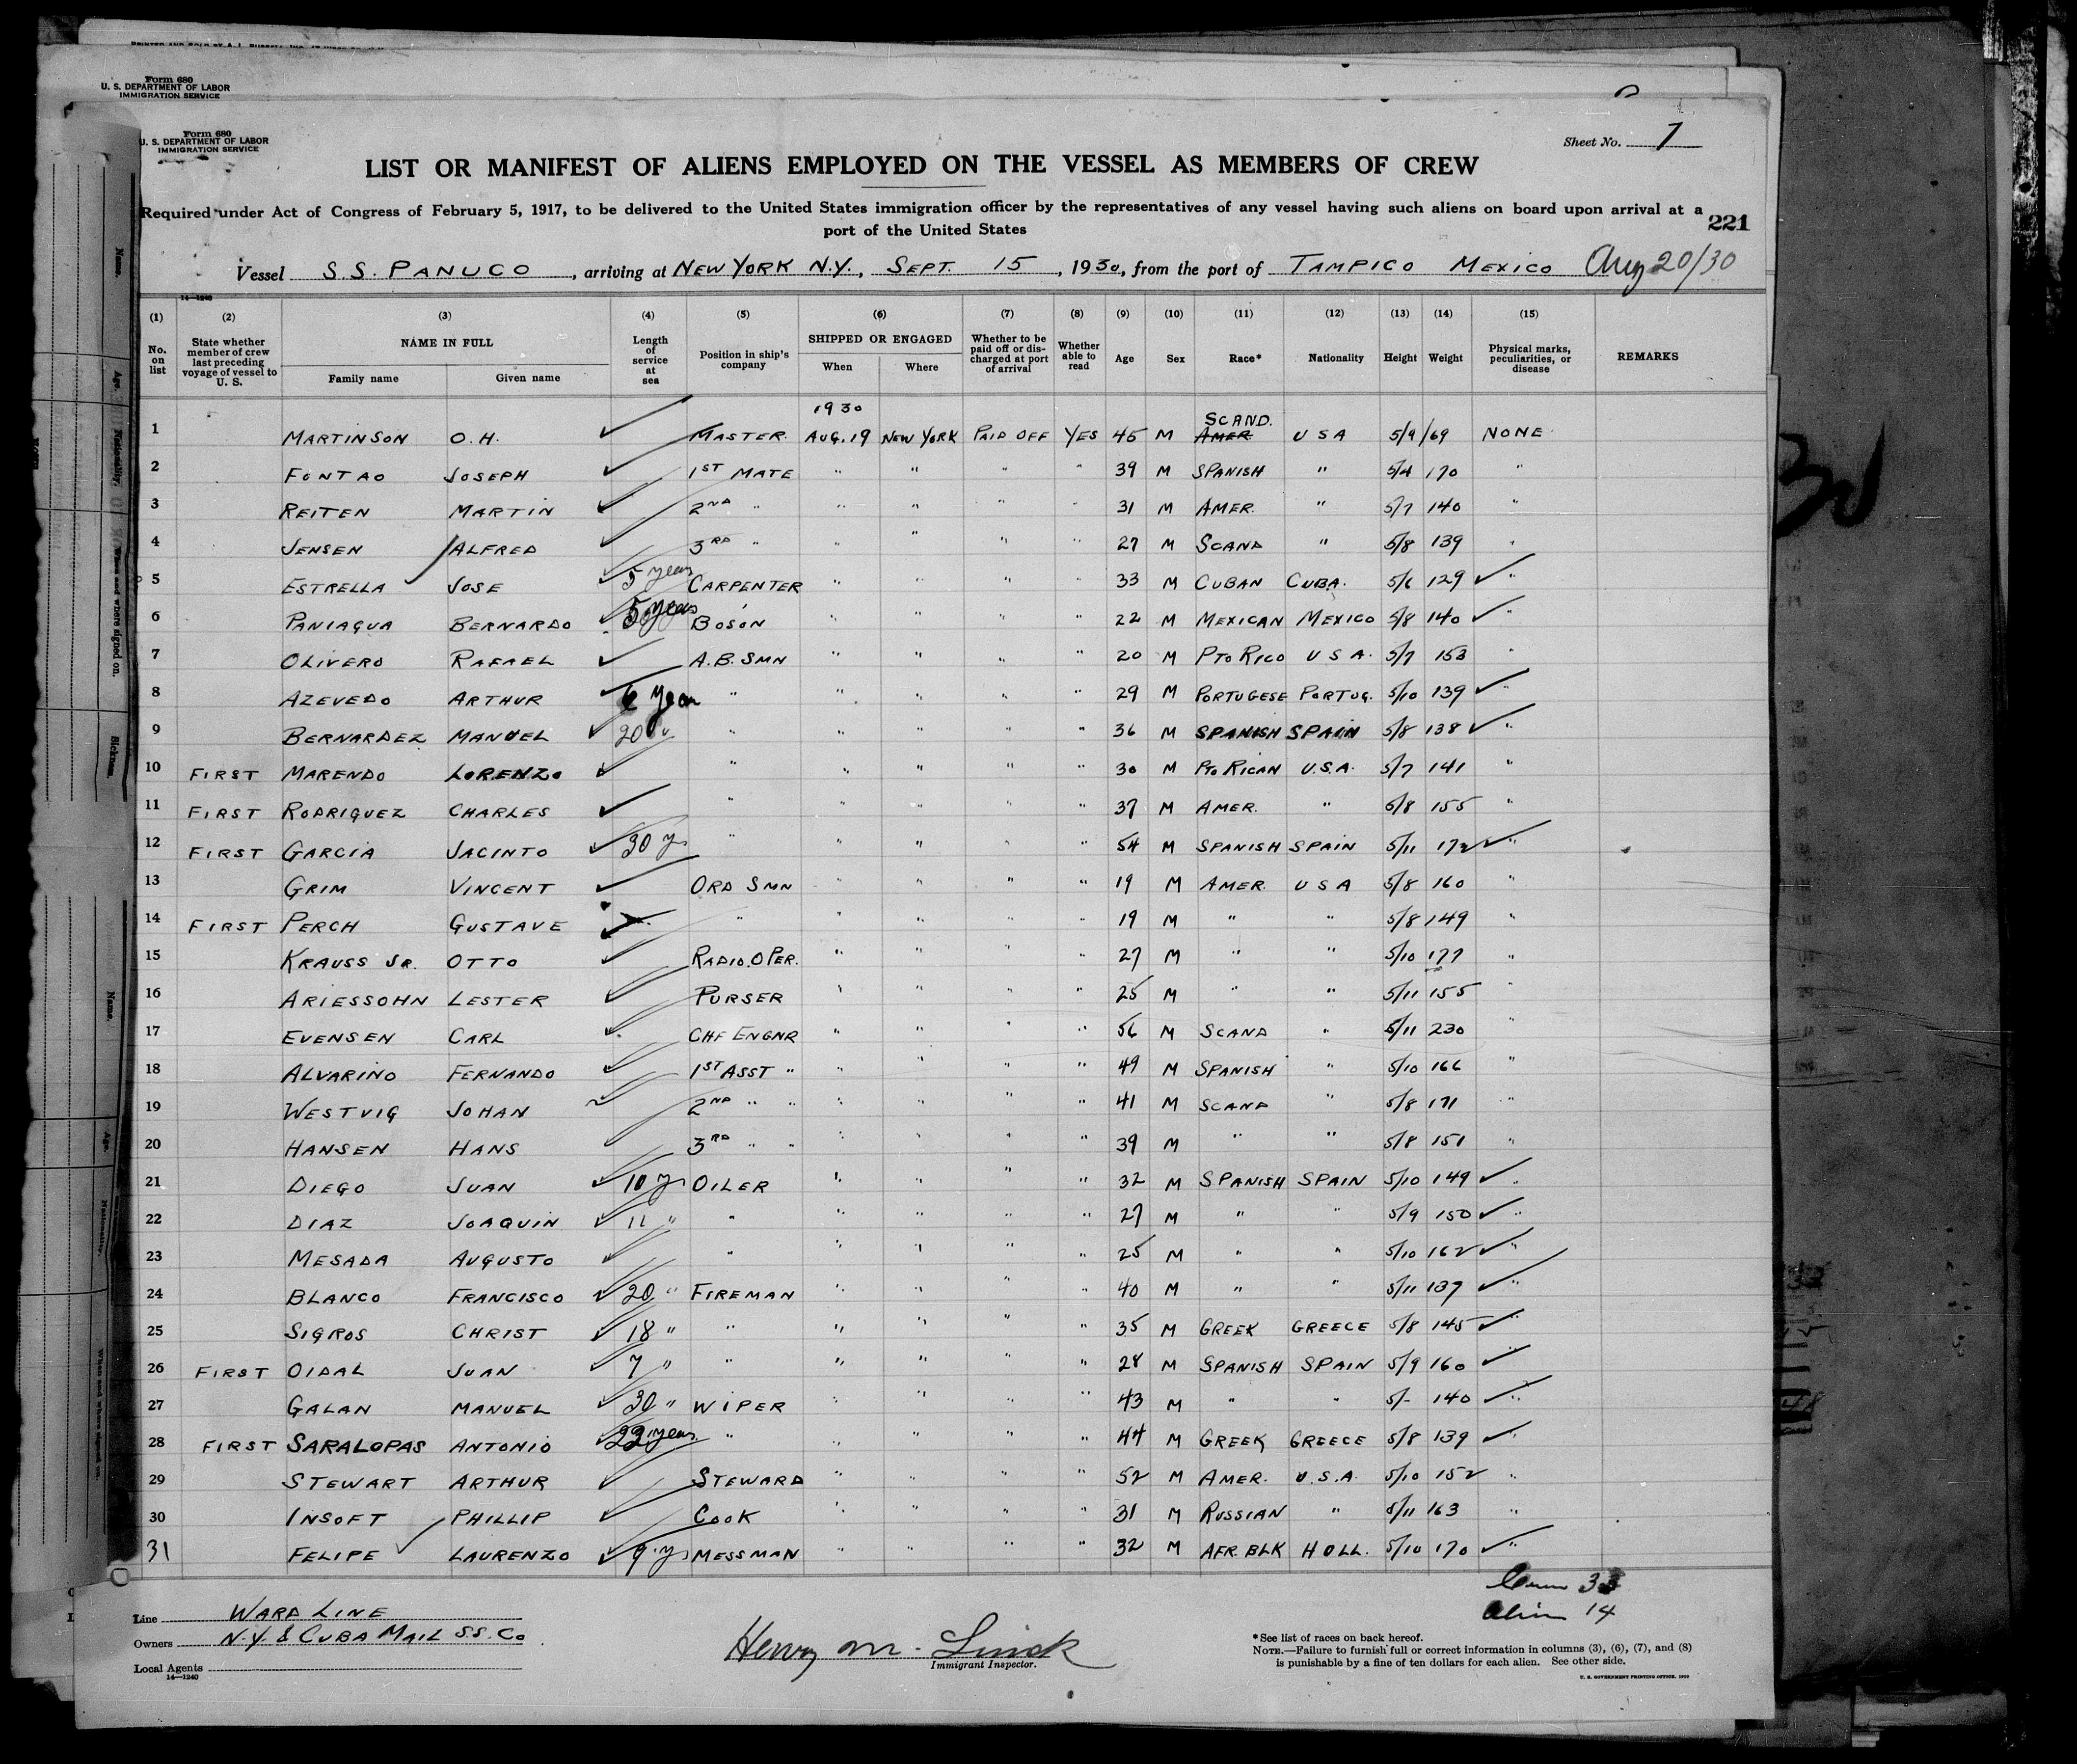 Form 680
U. S. DEPARTMENT OF LABOR
IMMIGRATION SERVICE
Form 680
U. S. DEPARTMENT OF LABOR
IMMIGRATION SERVICE
Sheet No. 1
LIST OR MANIFEST OF ALIENS EMPLOYED ON THE VESSEL AS MEMBERS OF CREW
Required under Act of Congress of February 5, 1917, to be delivered to the United States immigration officer by the representatives of any vessel having such aliens on board upon arrival at a
port of the United States
221
Vessel S.S. PANUCO, arriving at NEW YORK N.Y., SEPT. 15, 1930, from the port of TAMPICO MEXICO Aug 20/30
14—1240
(1) (2) (3) (4) (5) (6) (7) (8) (9) (10) (11) (12) (13) (14) (15)
No. on list State whether member of crew last preceding voyage of vessel to U. S. NAME IN FULL Family name Given name Length of service at sea Position in ship's company SHIPPED OR ENGAGED When Where Whether to be paid off or discharged at port of arrival Whether able to read Age Sex Race* Nationality Height Weight Physical marks, peculiarities, or disease REMARKS
1930
SCAND.
1 MARTINSON O.H. MASTER. AUG. 19 NEW YORK PAID OFF YES 45 M AMER U S A 5/9 169 NONE
2 FONTAO JOSEPH 1ST MATE " " " " 39 M SPANISH " 5/4 170 "
3 REITEN MARTIN 2ND " " " " " 31 M AMER. " 5/7 140 "
4 JENSEN ALFRED 3RD " " " " " 27 M SCAND " 5/8 139 "
5 ESTRELLA JOSE 5 years CARPENTER " " " " 33 M CUBAN CUBA. 5/6 129 "
6 PANIAGUA BERNARDO 5 years BOSON " " " " 22 M MEXICAN MEXICO 5/8 140 "
7 OLIVERO RAFAEL A.B. SMN " " " " 20 M PTO RICO U S A. 5/7 153 "
8 AZEVEDO ARTHUR 6 year " " " " " 29 M PORTUGESE PORTUG. 5/10 139 "
9 BERNARDEZ MANUEL 20 " " " " " " 36 M SPANISH SPAIN 5/8 138 "
10 FIRST MARENDO LORENZO " " " " " 30 M PTO RICAN U.S.A. 5/7 141 "
11 FIRST RODRIGUEZ CHARLES " " " " " 37 M AMER. " 5/8 155 "
12 FIRST GARCIA JACINTO 30 y " " " " " 54 M SPANISH SPAIN 5/11 172 "
13 GRIM VINCENT ORD SMN " " " " 19 M AMER. U S A 5/8 160 "
14 FIRST PERCH GUSTAVE " " " " " 19 M " " 5/8 149 "
15 KRAUSS JR. OTTO RADIO.OPER. " " " " 27 M " " 5/10 177 "
16 ARIESSOHN LESTER PURSER " " " " 25 M " " 5/11 155 "
17 EVENSEN CARL CHF ENGNR " " " " 56 M SCAND " 5/11 230 "
18 ALVARINO FERNANDO 1ST ASST " " " " " 49 M SPANISH " 5/10 166 "
19 WESTVIG JOHAN 2ND " " " " " " 41 M SCAND " 5/8 171 "
20 HANSEN HANS 3RD " " " " " " 39 M " " 5/8 151 "
21 DIEGO JUAN 10 y OILER " " " " 32 M SPANISH SPAIN 5/10 149 "
22 DIAZ JOAQUIN 11 " " " " " " 27 M " " 5/9 150 "
23 MESADA AUGUSTO " " " " " 25 M " " 5/10 162 "
24 BLANCO FRANCISCO 20 " FIREMAN " " " " 40 M " " 5/11 137 "
25 SIGROS CHRIST 18 " " " " " " 35 M GREEK GREECE 5/8 145 "
26 FIRST OIDAL JUAN 7 " " " " " " 28 M SPANISH SPAIN 5/9 160 "
27 GALAN MANUEL 30 " WIPER " " " " 43 M " " 5/- 140 "
28 FIRST SARALOPAS ANTONIO 22 years " " " " " 44 M GREEK GREECE 5/8 139 "
29 STEWART ARTHUR STEWARD " " " " 52 M AMER. U.S.A. 5/10 152 "
30 INSOFT PHILLIP COOK " " " " 31 M RUSSIAN " 5/11 163 "
31 FELIPE LAURENZO 9 y MESSMAN " " " " 32 M AFR. BLK HOLL. 5/10 170 "
33
Alien 14
Line WARD LINE
Owners N.Y. & CUBA MAIL S.S. Co.
Local Agents
14—1240
Henry M. Linck
Immigrant Inspector.
*See list of races on back hereof.
NOTE.—Failure to furnish full or correct information in columns (3), (6), (7), and (8)
is punishable by a fine of ten dollars for each alien. See other side.
U. S. GOVERNMENT PRINTING OFFICE